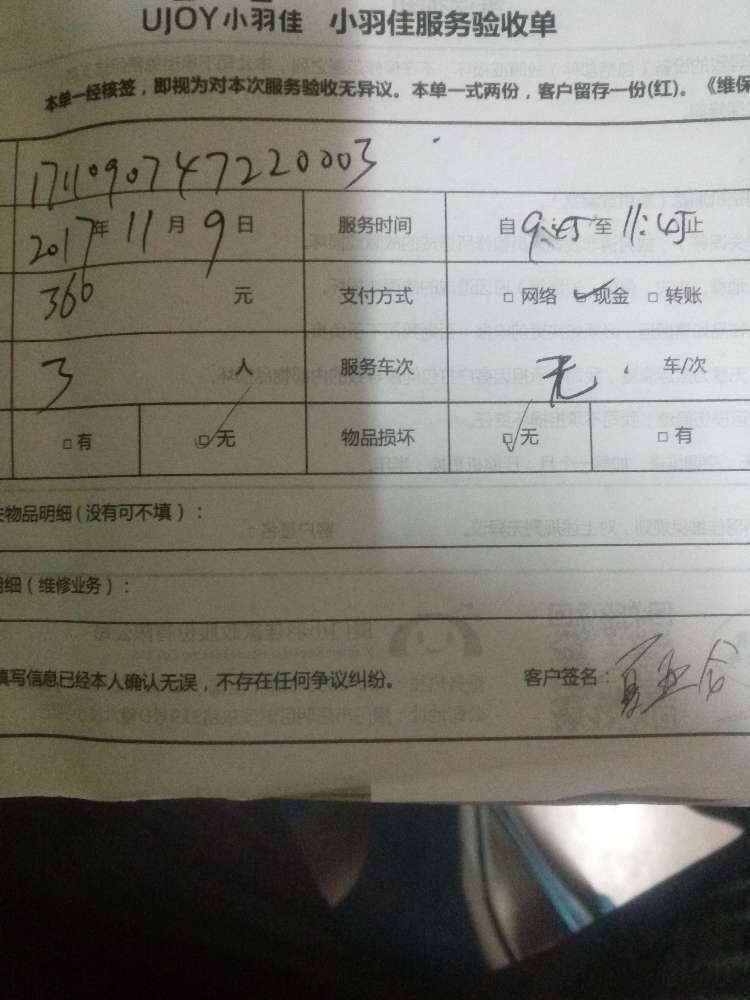 UJOY小羽佳 小羽佳服务验收单
本单一经核签，即视为对本次服务验收无异议。本单一式两份，客户留存一份(红)。《维保
1711090747220003
2017年11月9日 服务时间 自9:45至11:45止
360元 支付方式 □网络 ☑现金 □转账
3人 服务车次 无 车/次
□有 ☑无 物品损坏 ☑无 □有
物品明细(没有可不填)：
明细(维修业务)：
填写信息已经本人确认无误，不存在任何争议纠纷。 客户签名：